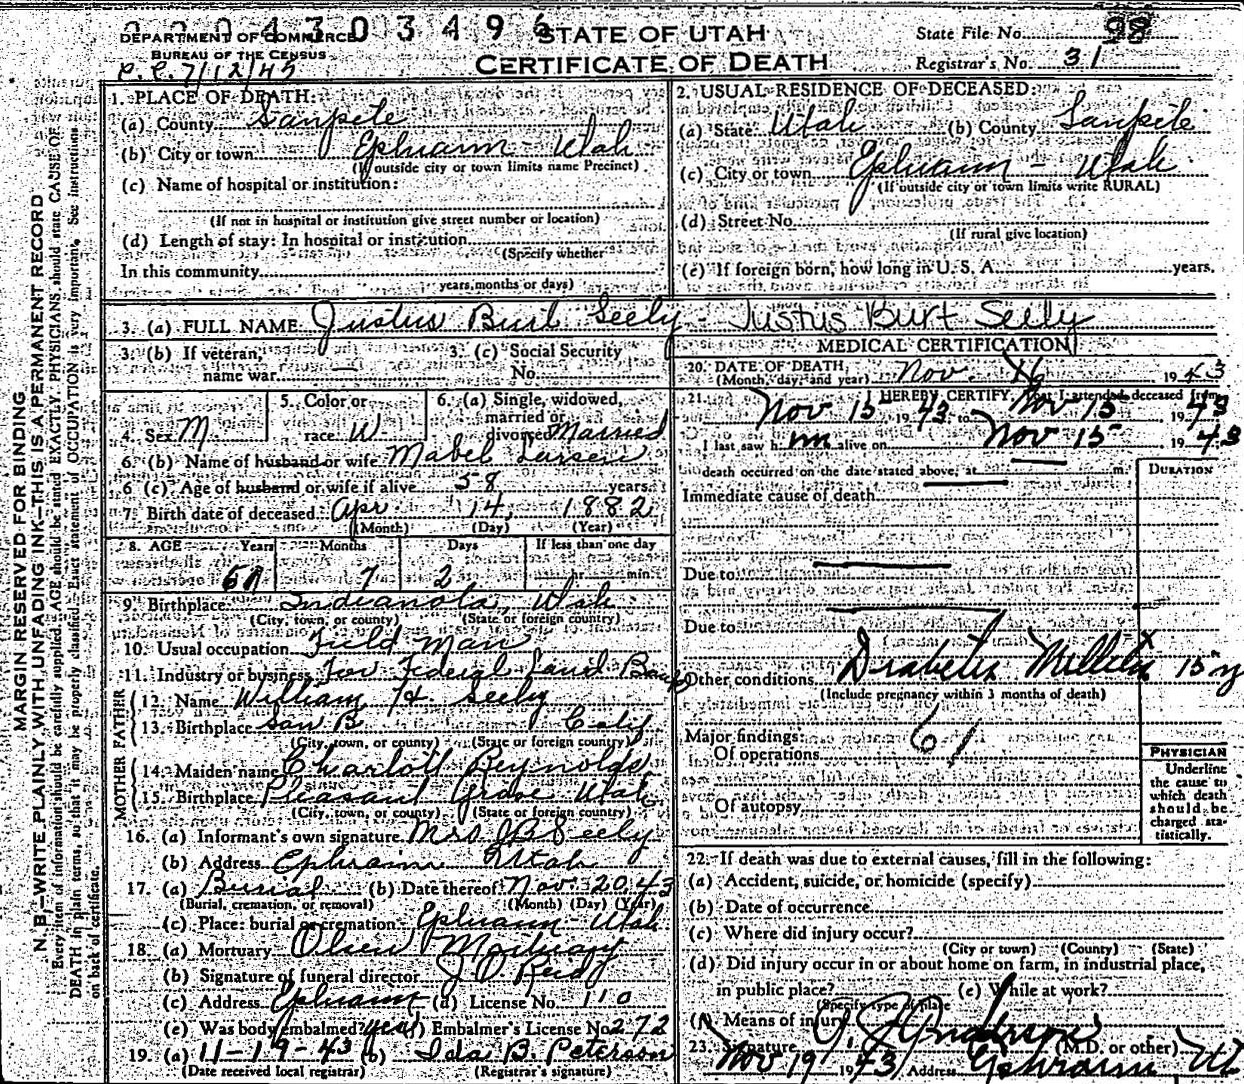 2204303496
DEPARTMENT OF COMMERCE
BUREAU OF THE CENSUS
P.C. 7/12/45
STATE OF UTAH
CERTIFICATE OF DEATH
State File No. 98
Registrar's No. 31
MARGIN RESERVED FOR BINDING
N. B.—WRITE PLAINLY, WITH UNFADING INK—THIS IS A PERMANENT RECORD
Every item of information should be carefully supplied. AGE should be stated EXACTLY. PHYSICIANS should state CAUSE OF
DEATH in plain terms, so that it may be properly classified. Exact statement of OCCUPATION is very important. See instructions
on back of certificate.
1. PLACE OF DEATH:
(a) County Sanpete
(b) City or town Ephraim - Utah
(If outside city or town limits name Precinct)
(c) Name of hospital or institution:
(If not in hospital or institution give street number or location)
(d) Length of stay: In hospital or institution
(Specify whether
In this community
years, months or days)
2. USUAL RESIDENCE OF DECEASED:
(a) State Utah (b) County Sanpete
(c) City or town Ephraim - Utah
(If outside city or town limits write RURAL)
(d) Street No.
(If rural give location)
(e) If foreign born, how long in U. S. A. years.
3. (a) FULL NAME Justus Burt Seely - Justus Burt Seely
3. (b) If veteran, name war
3. (c) Social Security No.
4. Sex M
5. Color or race W
6. (a) Single, widowed, married or divorced Married
6. (b) Name of husband or wife Mabel Larsen
6 (c) Age of husband or wife if alive 58 years.
7. Birth date of deceased Apr 14, 1882
(Month) (Day) (Year)
8. AGE Years Months Days If less than one day
7 2 hr. min.
9. Birthplace Indianola, Utah
(City, town, or county) (State or foreign country)
10. Usual occupation Field Man
11. Industry or business For Federal Land Bank
FATHER
12. Name William H Seely
13. Birthplace San B Calif
(City, town, or county) (State or foreign country)
MOTHER
14. Maiden name Charlott Reynolds
15. Birthplace Pleasant Grove Utah
(City, town, or county) (State or foreign country)
16. (a) Informant's own signature Mrs J B Seely
(b) Address Ephraim Utah
17. (a) Burial (b) Date thereof Nov 20 43
(Burial, cremation, or removal) (Month) (Day) (Year)
(c) Place: burial or cremation Ephraim - Utah
18. (a) Mortuary Olsen Mortuary
(b) Signature of funeral director
(c) Address Ephraim (d) License No. 110
(e) Was body embalmed? yes (f) Embalmer's License No. 272
19. (a) 11-19-43 (b) Ida B. Peterson
(Date received local registrar) (Registrar's signature)
MEDICAL CERTIFICATION
20. DATE OF DEATH
(Month, day, and year) Nov. 16 1943
21. I HEREBY CERTIFY, that I attended deceased from
Nov 15, 1943 to Nov 15 1943
I last saw him alive on Nov 15 1943
death occurred on the date stated above, at m.
DURATION
Immediate cause of death
Due to
Due to
Other conditions Diabetis Millitix 15 y
(Include pregnancy within 3 months of death)
61
Major findings:
Of operations
Of autopsy
PHYSICIAN
Underline
the cause to
which death
should be
charged sta-
tistically.
22. If death was due to external causes, fill in the following:
(a) Accident, suicide, or homicide (specify)
(b) Date of occurrence
(c) Where did injury occur?
(City or town) (County) (State)
(d) Did injury occur in or about home on farm, in industrial place,
in public place? (e) While at work?
(Specify type of place
(f) Means of injury
23. Signature Anderson (M.D. or other)
Nov 19 1943 Address Ephraim Ut